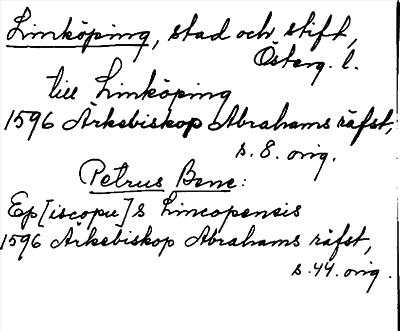 Linköping, stad och stift,
Österg. l.
till Linköping
1596 Ärkebiskop Abrahams räfst,
s. 8. orig.
Petrus Bene:
Ep[iscopu]s Lincopensis
1596 Ärkebiskop Abrahams räfst,
s. 44. orig.